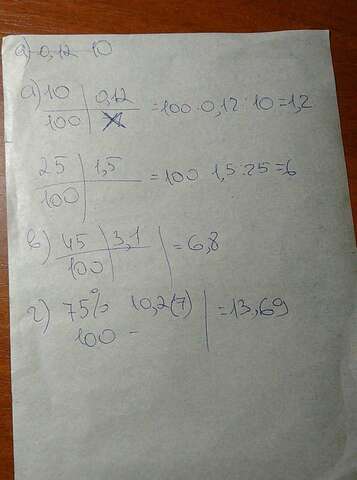 а) 0,12 10
а) 10 | 0,12
100 | X = 100 · 0,12 : 10 = 1,2
25 | 1,5
100 | = 100 1,5 : 25 = 6
в) 45 | 3,1
100 | = 6,8
г) 75% 10,2(7) | = 13,69
100 -